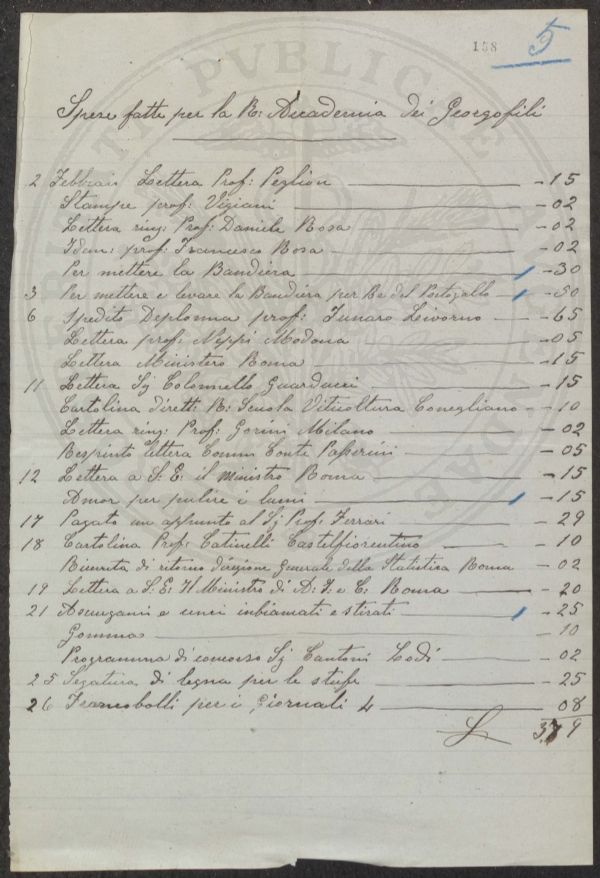 158 5
Spese fatte per la R: Accademia dei Georgofili
2 Febbraio Lettera Prof: Peglion — - 15
Stampe prof: Vigiani — - 02
Lettera ring: Prof: Daniele Rosa — - 02
Idem: prof: Francesco Rosa — - 02
Per mettere la Bandiera — - 30
3 Per mettere e levare la Bandiera per Re del Portogallo — - 50
6 Spedito Deploma prof: Funaro Livorno — - 65
Lettera prof: Neppi Modona — - 05
Lettera Ministero Roma — - 15
11 Lettera Sg Colonnello Guarducci — - 15
Cartolina dirett: R: Scuola Viticoltura Conegliano - - 10
Lettera ring: Prof: Gorini Milano — - 02
Respinto lettera Comm Conte Passerini — - 05
12 Lettera a S. E: il Ministro Roma — - 15
Amor per pulire i lumi — - 15
17 Pagato un appunto al Sg Prof: Ferrari — - 29
18 Cartolina Prof: Catinelli Castelfiorentino — - 10
Ricevuta di ritorno direzione Generale della Statistica Roma - 02
19 Lettera a S. E: Il Ministro di A: I: e C: Roma — - 20
21 Asciugami e unci inbiancati e stirati — - 25
Gomma — - 10
Programma di concorso Sg Cantoni Lodi — - 02
25 Segatura di legna per le stufe — - 25
26 Francobolli per i Giornali 4 — 08
L 379
PVBLICAE